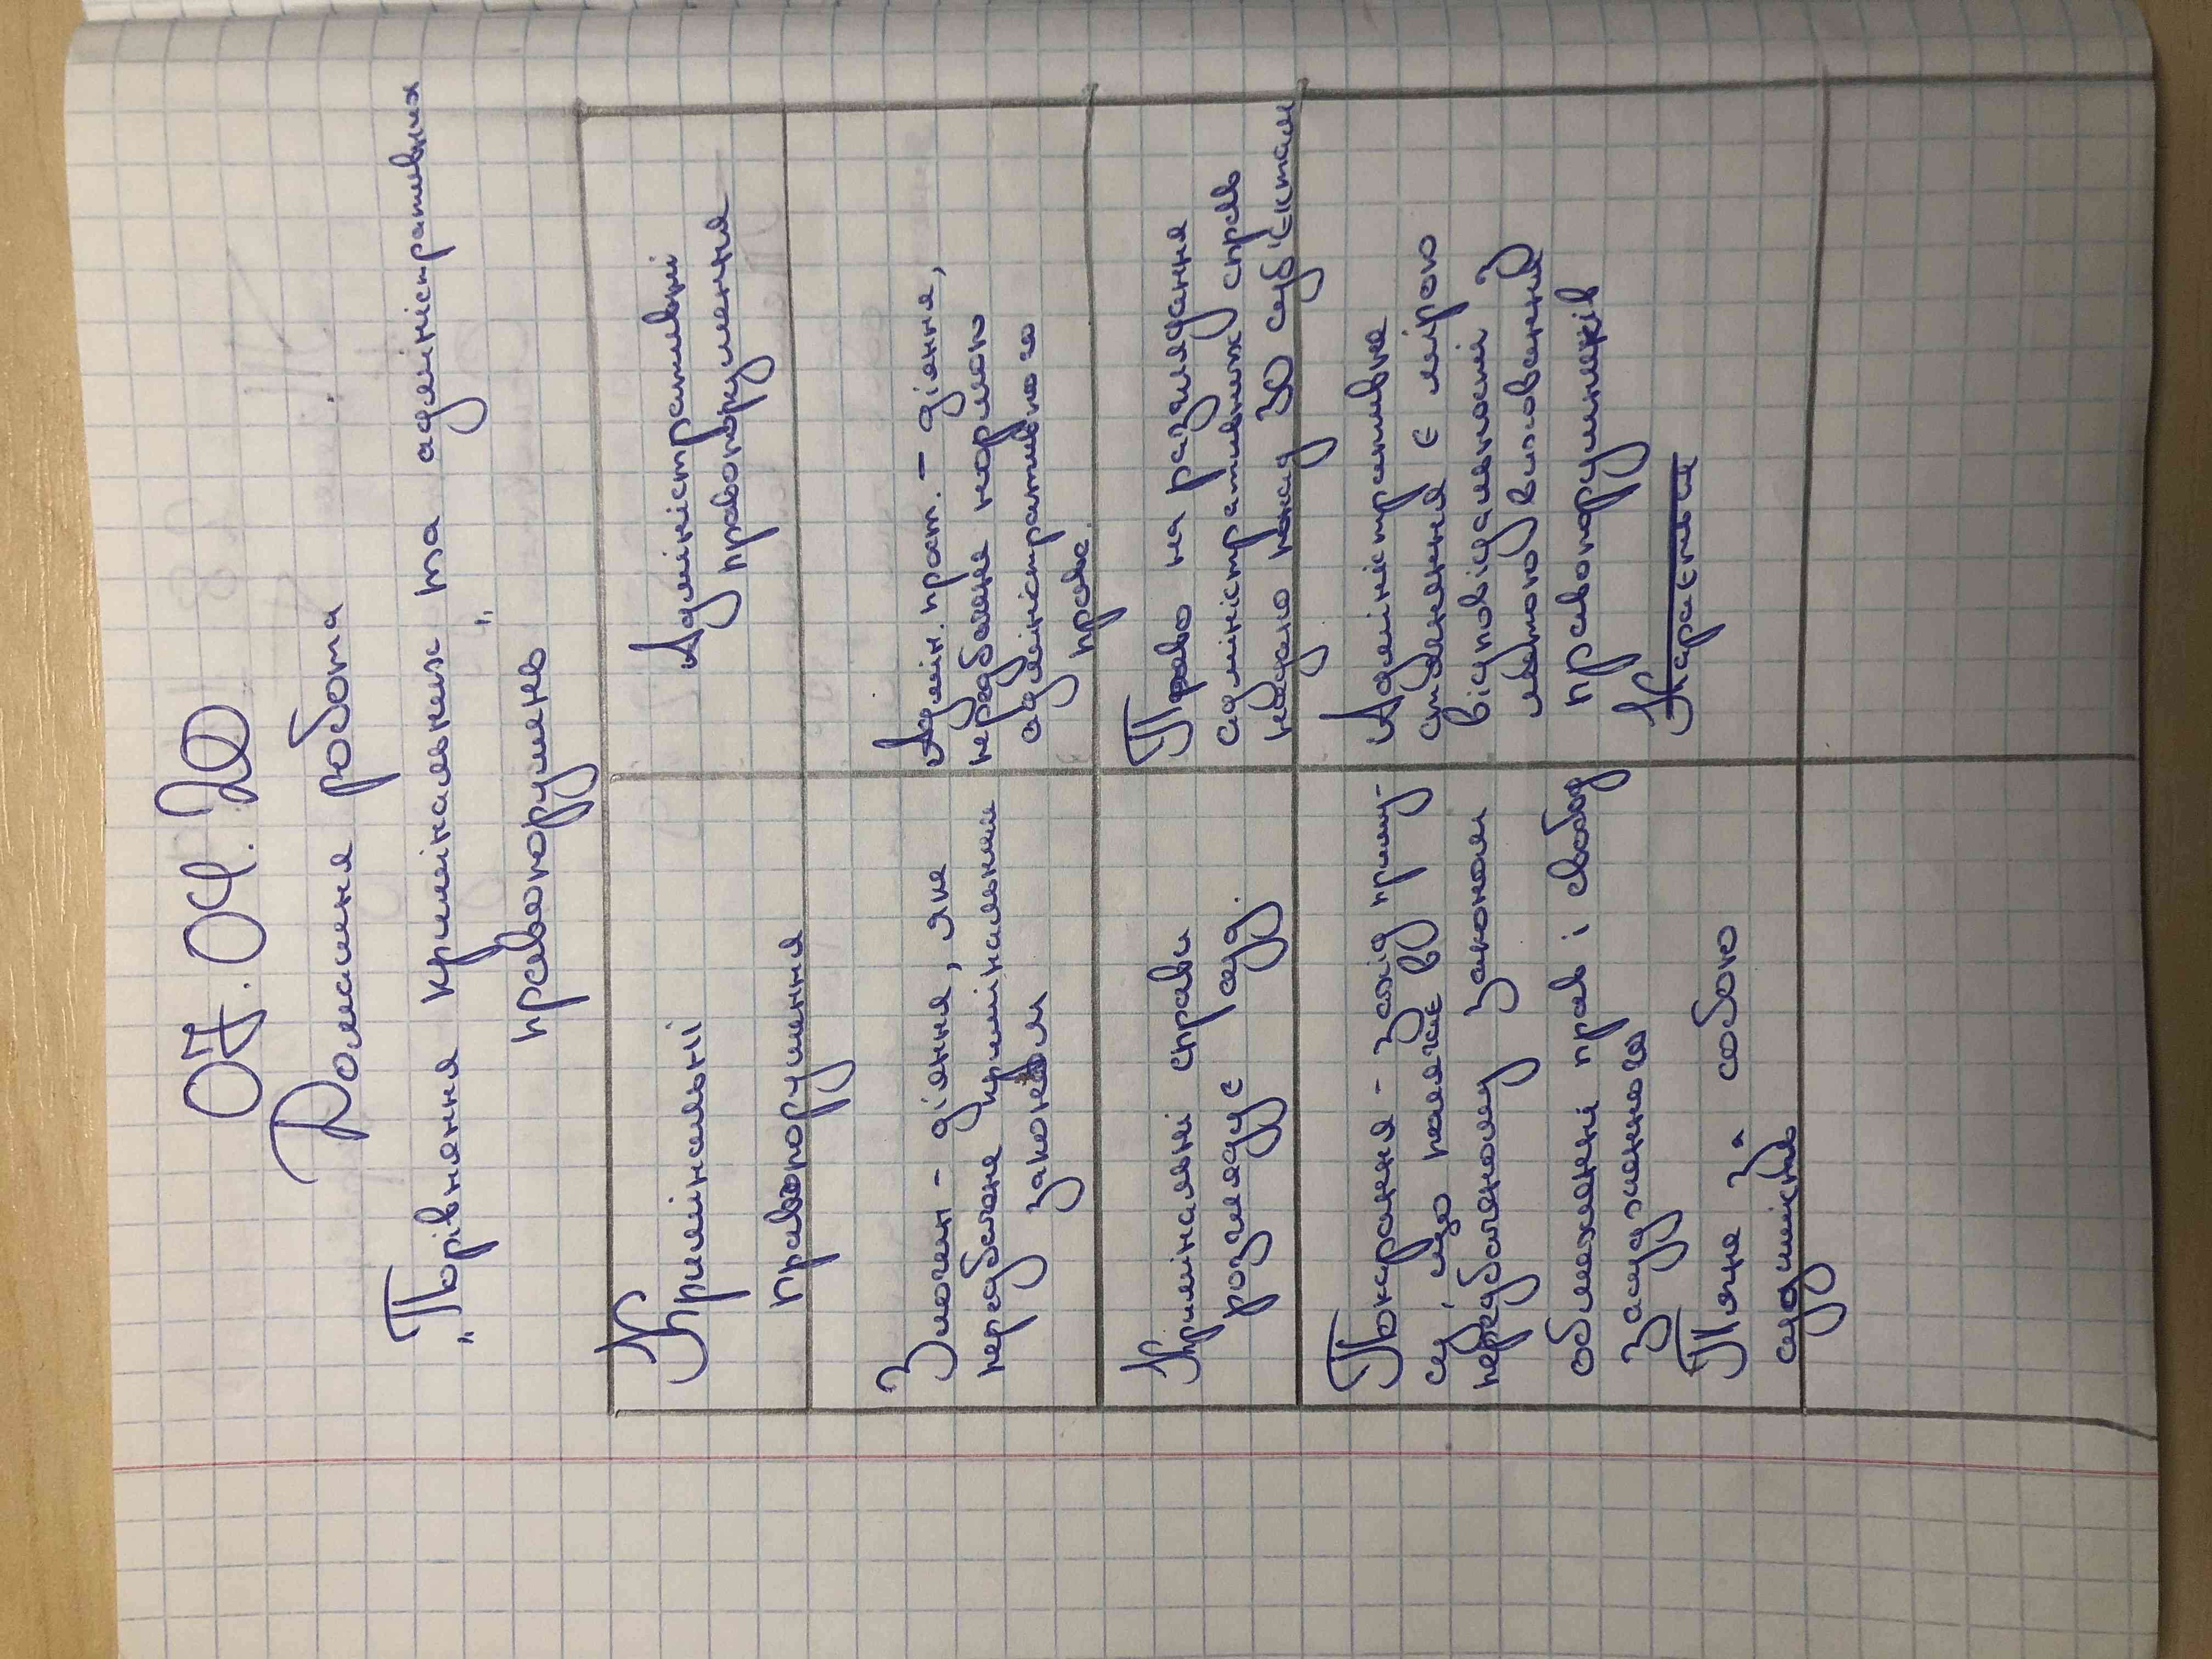 07.04.20
Домашня робота
„Порівняння кримінальних та адміністративних
правопорушень"
Кримінальні
правопорушення
Адміністративні
правопорушення
Злочин - діяння, яке
передбачене кримінальним
законом
Адмін. прост. - діяння,
передбачене нормою
адміністративного
права.
Кримінальні справи
розглядує суд.
Право на розглядання
адміністративних справ
надано понад 30 суб'єктам
Покарання - захід приму-
су, що полягає в
передбаченому законом
обмеженні прав і свобод
засудженого
Тягне за собою
судимість
Адміністративне
стягнення є мірою
відповідальності з
метою виховання
правопорушників